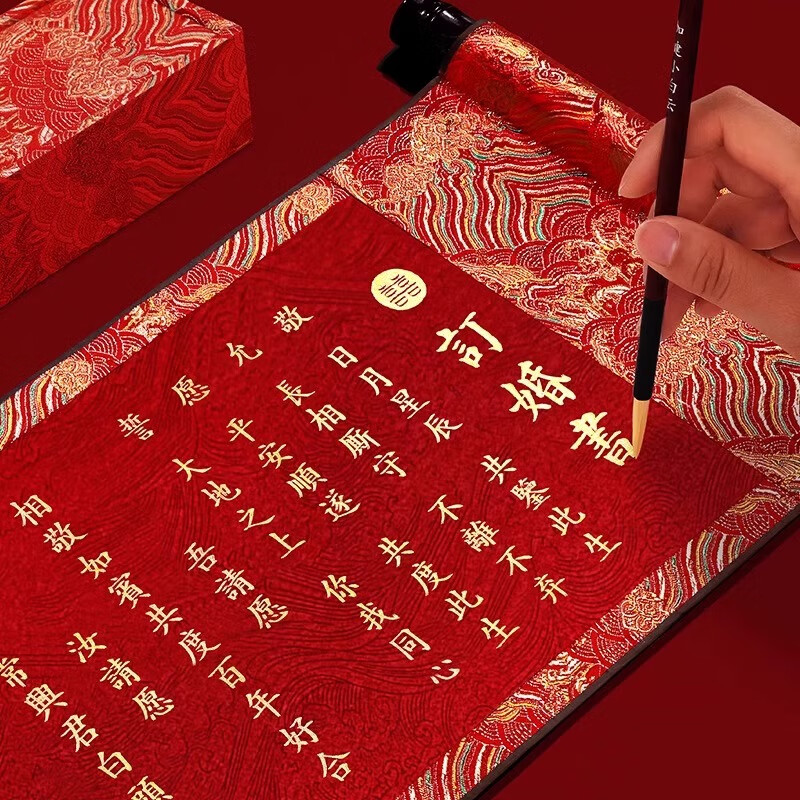 囍
訂婚書
敬 日月星辰 共鑒此生
允 長相厮守 不離不弃
愿 平安順遂 共度此生
誓 大地之上 你我同心
吾請愿
相敬如賓共度百年好合
汝請愿
常興君白頭
小白云